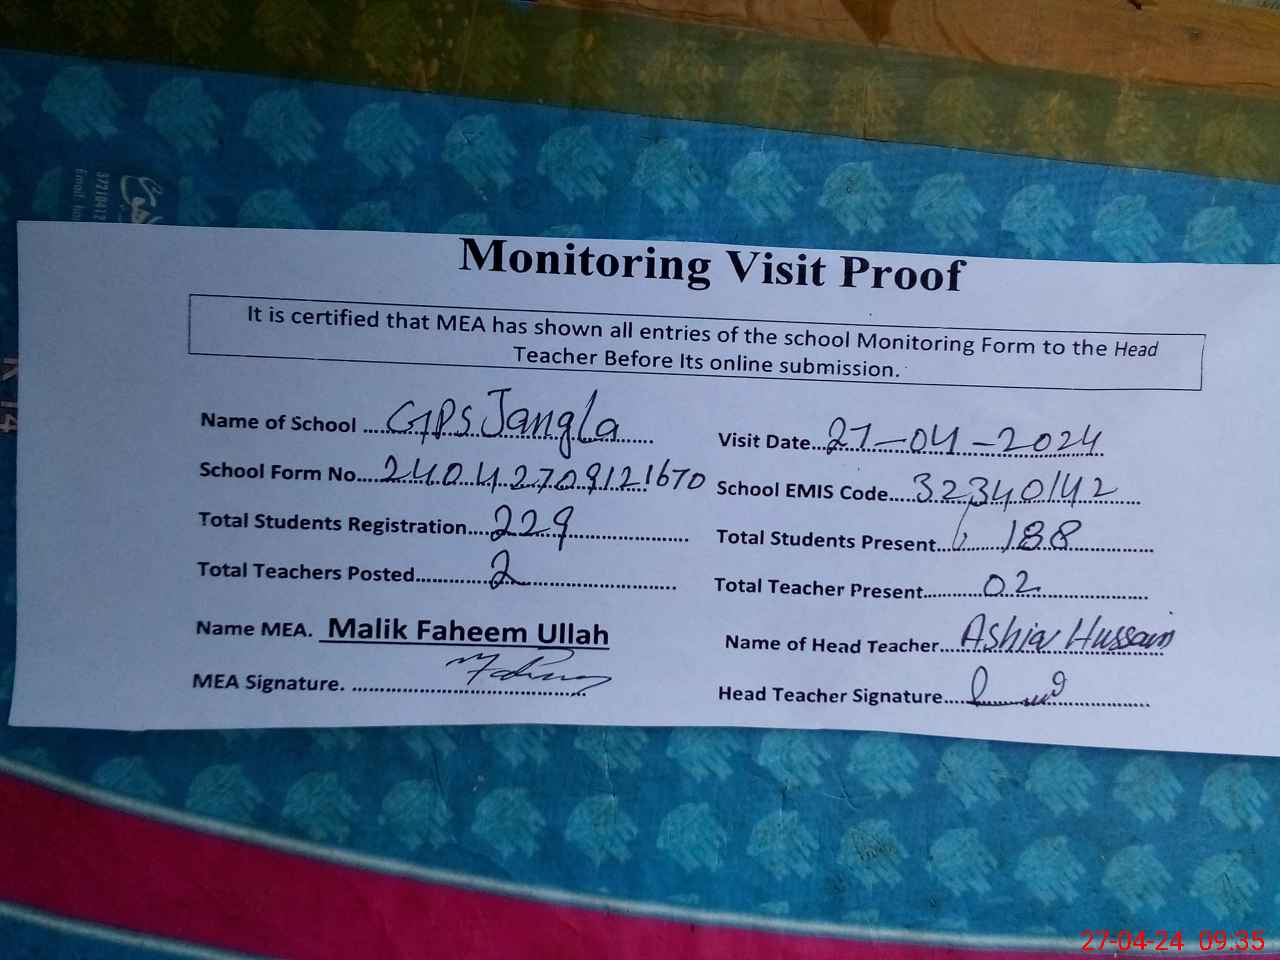 37104
Email:
Monitoring Visit Proof
It is certified that MEA has shown all entries of the school Monitoring Form to the Head
Teacher Before Its online submission.
Name of School GPS Jangla
Visit Date 27-04-2024
School Form No 24042709121670
School EMIS Code 32340142
Total Students Registration 229
Total Students Present 188
Total Teachers Posted 2
Total Teacher Present 02
Name MEA. Malik Faheem Ullah
Name of Head Teacher Ashiq Hussain
MEA Signature.
Head Teacher Signature
27-04-24 09:35